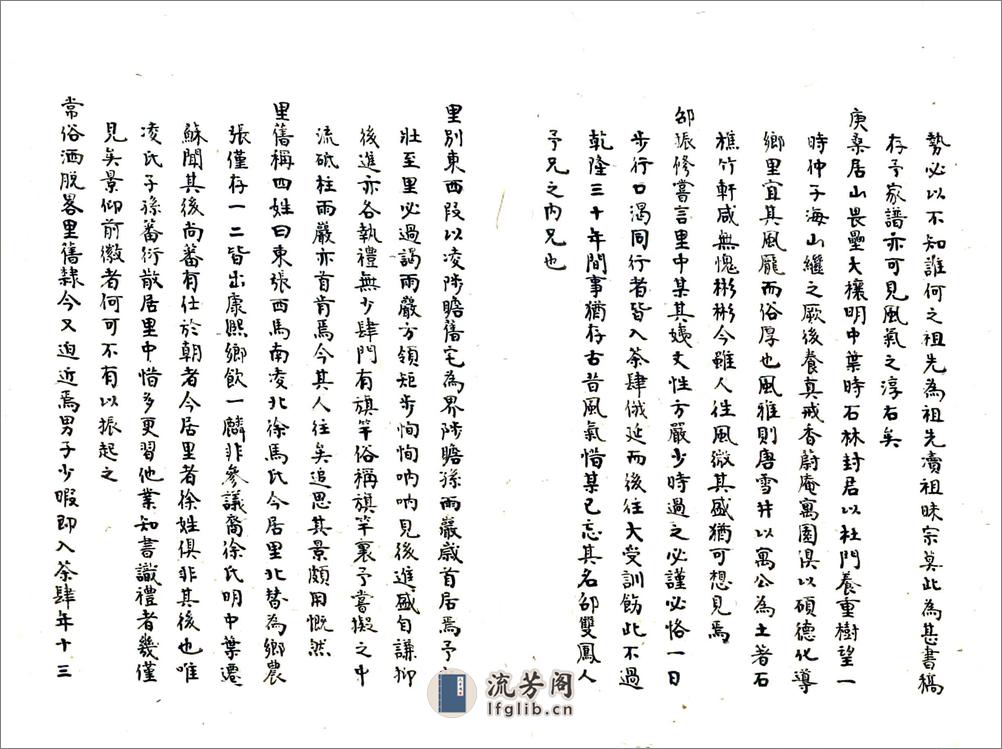 勢必以不知誰何之祖先為祖先賣祖昧宗莫此為甚書稿
存予家譜亦可見風氣之淳右矣
庚桑居山畏壘大穰明中葉時石林封君以杜門養重樹望一
時仲子海山繼之厥後養真戒香蔚庵寓園俱以碩德化導
鄉里宜其風龐而俗厚也風雅則唐雪井以寓公為土著石
樵竹軒咸無愧彬彬今雖人往風微其盛猶可想見焉
邵振修嘗言里中某其姨丈性方嚴少時過之必謹必恪一日
步行口渴同行者皆入茶肆俄延而後往大受訓飭此不過
乾隆三十年間事猶存古昔風氣惜某已忘其名邵雙鳳人
予兄之內兄也
里別東西段以凌陟瞻舊宅為界陟瞻孫雨巖歲首居焉予
壯至里必過謁雨嚴方領矩步恂恂吶吶見後進盛自謙抑
後進亦各執禮無少肆門有旗竿俗稱旗竿裏予嘗擬之中
流砥柱雨嚴亦首肯焉今其人往矣追思其景頗用慨然
里舊稱四姓曰東張西馬南凌北徐馬氏今居里北替為鄉農
張僅存一二皆出康熙鄉飲一麟非參議裔徐氏明中葉遷
蘇聞其後尚蕃有仕於朝者今居里者徐姓俱非其後也唯
凌氏子孫蕃衍散居里中惜多更習他業知書識禮者幾僅
見矣景仰前徽者何可不有以振起之
常俗洒脫畧里舊隸今又迫近焉男子少暇即入茶肆年十三
流芳阁
lfglib.cn